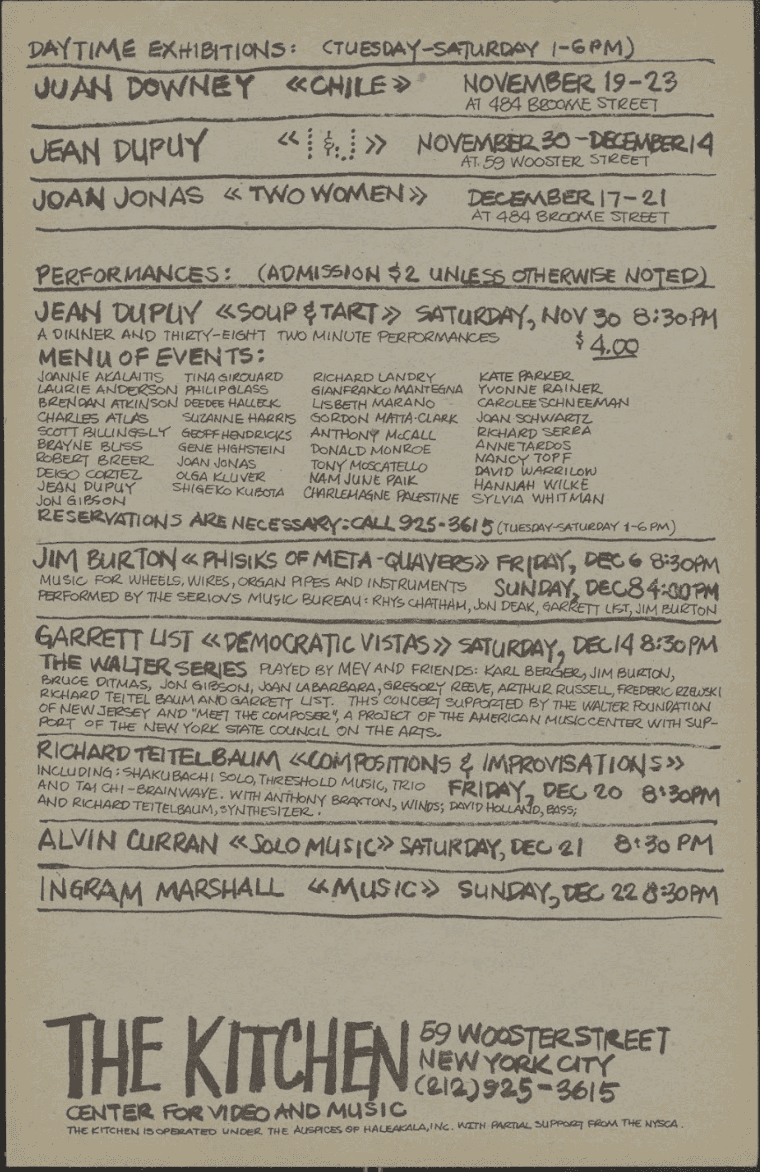 DAYTIME EXHIBITIONS: (TUESDAY-SATURDAY 1-6PM)
JUAN DOWNEY «CHILE» NOVEMBER 19-23
AT 484 BROOME STREET
JEAN DUPUY « & » NOVEMBER 30-DECEMBER 14
AT 59 WOOSTER STREET
JOAN JONAS «TWO WOMEN» DECEMBER 17-21
AT 484 BROOME STREET
PERFORMANCES: (ADMISSION $2 UNLESS OTHERWISE NOTED)
JEAN DUPUY «SOUP & TART» SATURDAY, NOV 30 8:30PM
A DINNER AND THIRTY-EIGHT TWO MINUTE PERFORMANCES $4.00
MENU OF EVENTS:
JOANNE AKALAITIS TINA GIROUARD RICHARD LANDRY KATE PARKER
LAURIE ANDERSON PHILIP GLASS GIANFRANCO MANTEGNA YVONNE RAINER
BRENDAN ATKINSON DEEDEE HALLECK LISBETH MARANO CAROLEE SCHNEEMAN
CHARLES ATLAS SUZANNE HARRIS GORDON MATTA-CLARK JOAN SCHWARTZ
SCOTT BILLINGSLY GEOFF HENDRICKS ANTHONY McCALL RICHARD SERRA
BRAYNE BLISS GENE HIGHSTEIN DONALD MONROE ANNE TARDOS
ROBERT BREER JOAN JONAS TONY MOSCATELLO NANCY TOPF
DEIGO CORTEZ OLGA KLUVER NAM JUNE PAIK DAVID WARRILOW
JEAN DUPUY SHIGEKO KUBOTA CHARLEMAGNE PALESTINE HANNAH WILKE
JON GIBSON SYLVIA WHITMAN
RESERVATIONS ARE NECESSARY: CALL 925-3615 (TUESDAY-SATURDAY 1-6 PM)
JIM BURTON «PHISIKS OF META-QUAVERS» FRIDAY, DEC 6 8:30PM
MUSIC FOR WHEELS, WIRES, ORGAN PIPES AND INSTRUMENTS SUNDAY, DEC 8 4:00PM
PERFORMED BY THE SERIOUS MUSIC BUREAU: RHYS CHATHAM, JON DEAK, GARRETT LIST, JIM BURTON
GARRETT LIST «DEMOCRATIC VISTAS» SATURDAY, DEC 14 8:30PM
THE WALTER SERIES PLAYED BY MEV AND FRIENDS: KARL BERGER, JIM BURTON,
BRUCE DITMAS, JON GIBSON, JOAN LABARBARA, GREGORY REEVE, ARTHUR RUSSELL, FREDERIC RZEWSKI
RICHARD TEITELBAUM AND GARRETT LIST. THIS CONCERT SUPPORTED BY THE WALTER FOUNDATION
OF NEW JERSEY AND "MEET THE COMPOSER", A PROJECT OF THE AMERICAN MUSIC CENTER WITH SUP-
PORT OF THE NEW YORK STATE COUNCIL ON THE ARTS.
RICHARD TEITELBAUM «COMPOSITIONS & IMPROVISATIONS»
INCLUDING: SHAKUBACHI SOLO, THRESHOLD MUSIC, TRIO FRIDAY, DEC 20 8:30PM
AND TAI CHI-BRAINWAVE. WITH ANTHONY BRAXTON, WINDS; DAVID HOLLAND, BASS;
AND RICHARD TEITELBAUM, SYNTHESIZER.
ALVIN CURRAN «SOLO MUSIC» SATURDAY, DEC 21 8:30 PM
INGRAM MARSHALL «MUSIC» SUNDAY, DEC 22 8:30PM
THE KITCHEN
59 WOOSTER STREET
NEW YORK CITY
(212) 925-3615
CENTER FOR VIDEO AND MUSIC
THE KITCHEN IS OPERATED UNDER THE AUSPICES OF HALEAKALA, INC. WITH PARTIAL SUPPORT FROM THE NYSCA.